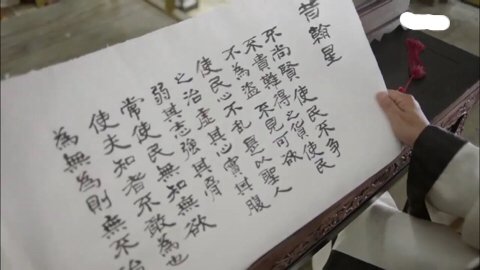 昔翰星
不尚賢 使民不争
不貴難得之貨 使民
不為盗 不見可欲
使民心不乱 是以聖人
之治虛其心實其腹
弱其志強其骨
常使民無知無欲
使夫知者不敢為也
為無為則無不治